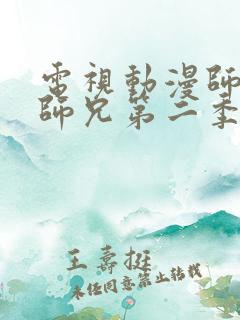 電視動漫師
師兄第二季
王壽挺
未經同意禁止轉載